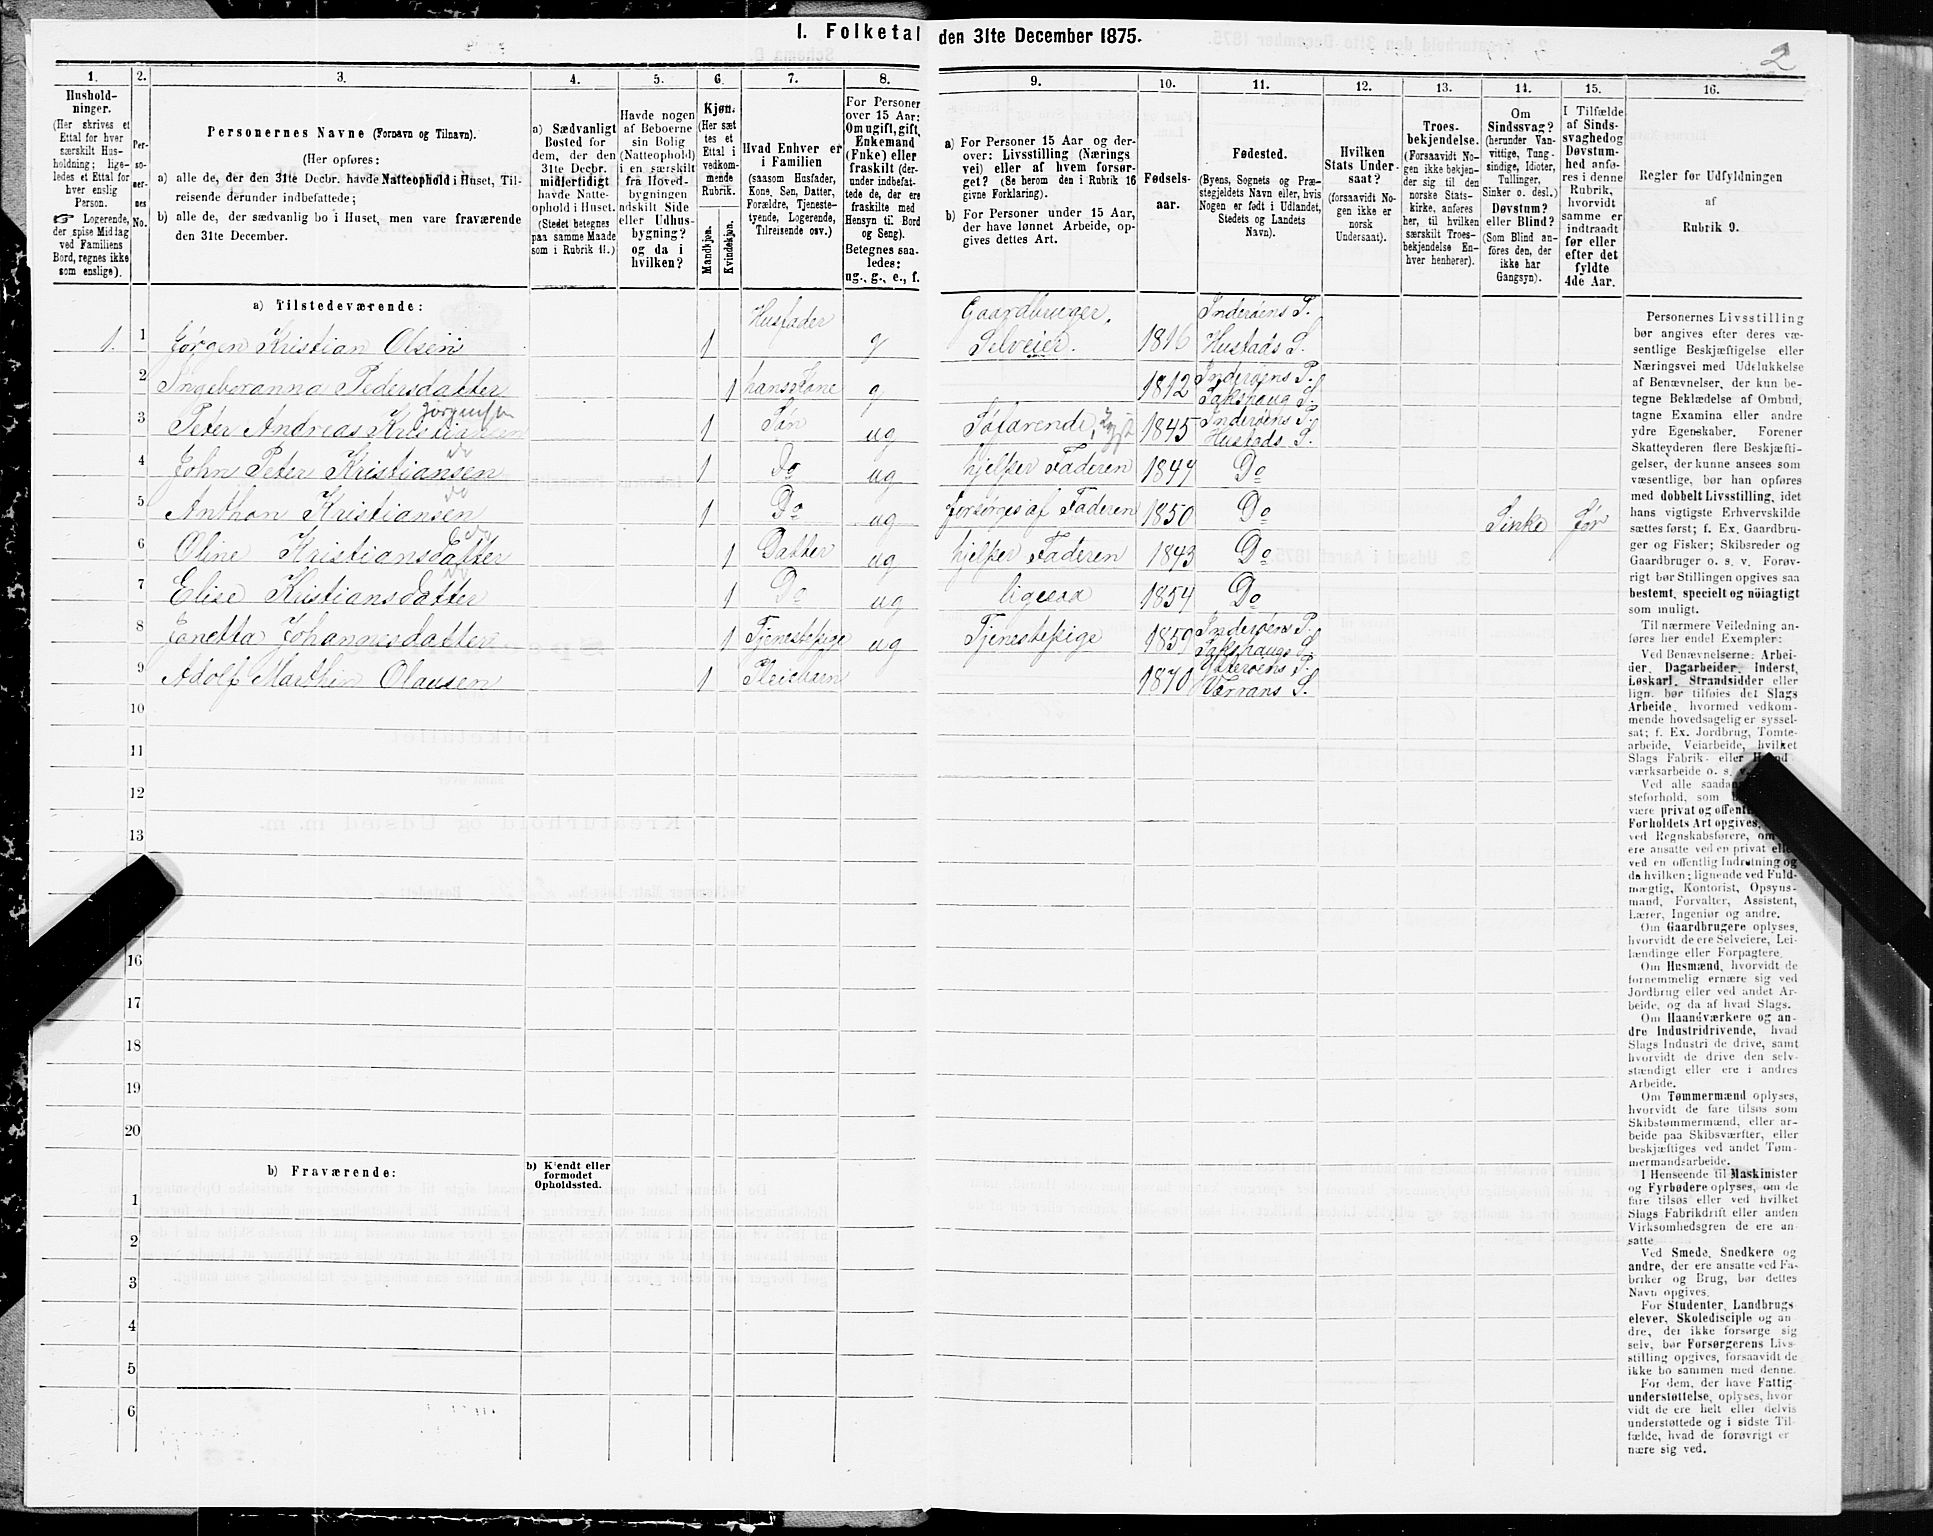 I. Folketal den 31te December 1875.
2
1.
Hushold-
ninger.
(Her skrives et
Ettal for hver
særskilt Hus-
holdning; lige-
ledes et Ettal for
hver enslig
Person.
☞ Logerende,
der spise Middag
ved Familiens
Bord, regnes ikke
som enslige).
2.
Per-
so-
ner-
nes
No.
3.
Personernes Navne (Fornavn og Tilnavn).
(Her opføres:
a) alle de, der den 31te Decbr. havde Natteophold i Huset, Til-
reisende derunder indbefattede;
b) alle de, der sædvanlig bo i Huset, men vare fraværende
den 31te December.
4.
a) Sædvanligt
Bosted for
dem, der den
31te Decbr.
midlertidigt
havde Natte-
ophold i Huset.
(Stedet betegnes
paa samme Maade
som i Rubrik 11.)
5.
Havde nogen
af Beboerne
sin Bolig
(Natteophold)
i en særskilt
fra Hoved-
bygningen
adskilt Side
eller Udhus-
bygning?
og da i
hvilken?
6.
Kjøn.
(Her sæt
tes et
Ettal i
vedkom-
mende
Rubrik.
Mandkjøn.
Kvindekjøn.
7.
Hvad Enhver er
i Familien
(saasom Husfader,
Kone, Søn, Datter,
Forældre, Tjeneste-
tyende, Logerende,
Tilreisende osv.)
8.
For Personer
over 15 Aar:
Om ugift, gift,
Enkemand
(Enke) eller
fraskilt (der-
under indbefat-
tede de, der ere
fraskilte med
Hensyn til Bord
og Seng).
Betegnes saa-
ledes:
ug., g., e., f.
9.
a) For Personer 15 Aar og der-
over: Livsstilling (Nærings
vei) eller af hvem forsør-
get? (Se herom den i Rubrik 16
givne Forklaring).
b) For Personer under 15 Aar,
der have lønnet Arbeide, op-
gives dettes Art.
10.
Fødsels-
aar.
11.
Fødested.
(Byens, Sognets og Præ-
stegjeldets Navn eller, hvis
Nogen er født i Udlandet,
Stedets og Landets
Navn).
12.
Hvilken
Stats Under-
saat?
(forsaavidt No-
gen ikke er
norsk
Undersaat).
13.
Troes-
bekjendelse.
(Forsaavidt No-
gen ikke bekjen-
der sig til den
norske Stats-
kirke, anføres
her, til hvilken
særskilt Troes-
bekjendelse En-
hver henhører).
14.
Om
Sindssvag?
(herunder Van-
vittige, Tung-
sindige, Idioter,
Tullinger,
Sinker o. desl.)
Døvstum?
eller Blind?
(Som Blind an-
føres den, der
ikke har
Gangsyn).
15.
I Tilfælde
af Sinds-
svaghed og
Døvstum-
hed anfø-
res i denne
Rubrik,
hvorvidt
samme er
indtraadt
før eller
efter det
fyldte
4de Aar.
16.
Regler for Udfyldningen
af
Rubrik 9.
a) Tilstedeværende:
1. 1 Jørgen Kristian Olsen 1 Husfader g Gaardbruger, Selveier. 1816 Inderøens P. Hustads S.
2 Ingeboranna Pedersdatter 1 hans Kone g 1812 Inderøens P. Sakshaug S.
3 Peter Andreas Kristiansen Jørgensen 1 Søn ug Søfarende, 1845 Inderøens P. Hustads S.
4 John Peter Kristiansen do 1 Do ug hjelper Faderen 1847 Do
5 Anthon Kristiansen do 1 Do ug forsørges af Faderen 1850 Do Sinke før
6 Oline Kristiansdatter 1 Datter ug hjelper Faderen 1843 Do
7 Elise Kristiansdatter do 1 Do ug ligesaa 1854 Do
8 Janetta Johannesdatter 1 Tjenestepige ug Tjenestepige 1859 Inderøens P. Sakshaugs S
9 Adolf Marthin Olausen 1 Pleiebarn 1870 Ytterøens P. Værrans S.
10
11
12
13
16
17
18
19
20
b) Fraværende:
b) Kjendt eller
formodet
Opholdssted.
1
2
3
4
5
6
Personernes Livsstilling
bør angives efter deres væ-
sentlige Beskjæftigelse eller
Næringsvei med Udelukkelse
af Benævnelser, der kun be-
tegne Beklædelse af Ombud,
tagne Examina eller andre
ydre Egenskaber. Forener
Skatteyderen flere Beskjæfti-
gelser, der kunne ansees som
væsentlige, bør han opføres
med dobbelt Livsstilling, idet
hans vigtigste Erhvervskilde
sættes først; f. Ex. Gaardbru-
ger og Fisker; Skibsreder og
Gaardbruger o. s. v. Forøv-
rigt bør Stillingen opgives saa
bestemt, specielt og nöiagtigt
som muligt.
Til nærmere Veiledning an-
føres her endel Exempler:
Ved Benævnelserne: Arbei-
der, Dagarbeider, Inderst,
Løskarl, Strandsidder eller
lign. bør tilføies det Slags
Arbeide, hvormed vedkom-
mende hovedsagelig er syssel-
sat; f. Ex. Jordbrug, Tomte-
arbeide, Veiarbeide, hvilket
Slags Fabrik- eller Haand-
værksarbeide o. s. v.
Ved alle saadan
steforhold, som
være privat og offentl
Forholdets Art opgives,
ved Regnskabsførere, om
ere ansatte ved en privat eller
ved en offentlig Indretning og
da hvilken; lignende ved Fuld-
mægtig, Kontorist, Opsyns-
mand, Forvalter, Assistent,
Lærer, Ingeniør og andre.
Om Gaardbrugere oplyses,
hvorvidt de ere Selveiere, Lei-
lændinge eller Forpagtere.
Om Husmænd, hvorvidt de
fornemmelig ernære sig ved
Jordbrug eller ved andet Ar-
beide, og da af hvad Slags.
Om Haandværkere og an-
dre Industridrivende, hvad
Slags Industri de drive, samt
hvorvidt de drive den selv-
stændigt eller ere i andres
Arbeide.
Om Tømmermænd oplyses,
hvorvidt de fare tilsøs som
Skibstømmermænd, eller ar-
beide paa Skibsværfter, eller
beskjæftiges ved andet Tøm-
mermandsarbeide.
I Henseende til Maskinister
og Fyrbødere oplyses, om de
fare tilsøs eller ved hvilket
Slags Fabrikdrift eller anden
Virksomhedsgren de ere an-
satte
Ved Smede, Snedkere og
andre, der ere ansatte ved Fa-
briker og Brug, bør dettes
Navn opgives.
For Studenter, Landbrugs
elever, Skoledisciple og an
dre, der ikke forsørge sig
selv, bør Forsørgerens Livs-
stilling opgives, forsaavidt de
ikke bo sammen med denne.
For dem, der have Fattig
understøttelse, oplyses, hvor
vidt de ere helt eller delvis
understøttede og i sidste Til-
fælde, hvad de forøvrigt er
nære sig ved.